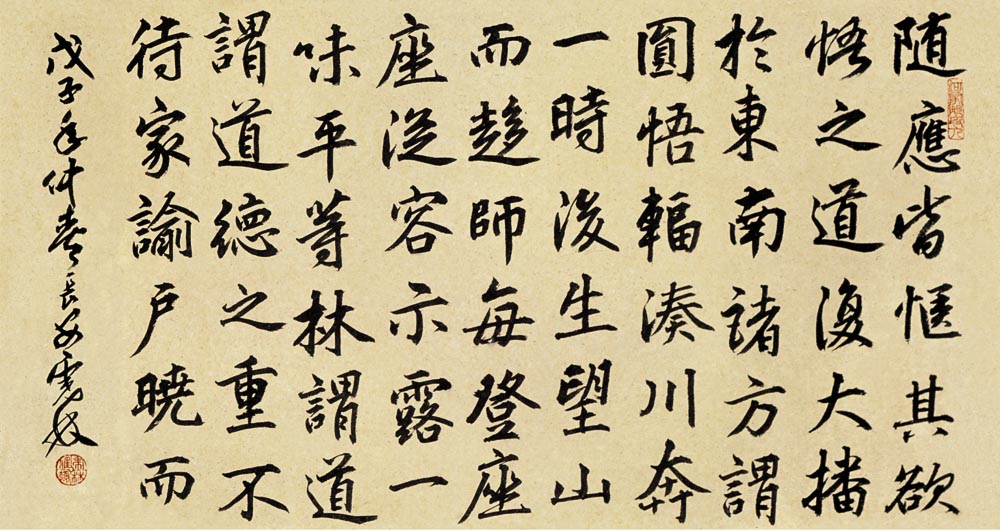 随應皆愜其欲
悟之道復大播
於東南諸方謂
圓悟輻湊川奔
一時後生望山
而趍師每登座
座從容示露一
味平等林謂道
謂道德之重不
待家諭户曉而
戊子年仲春長安